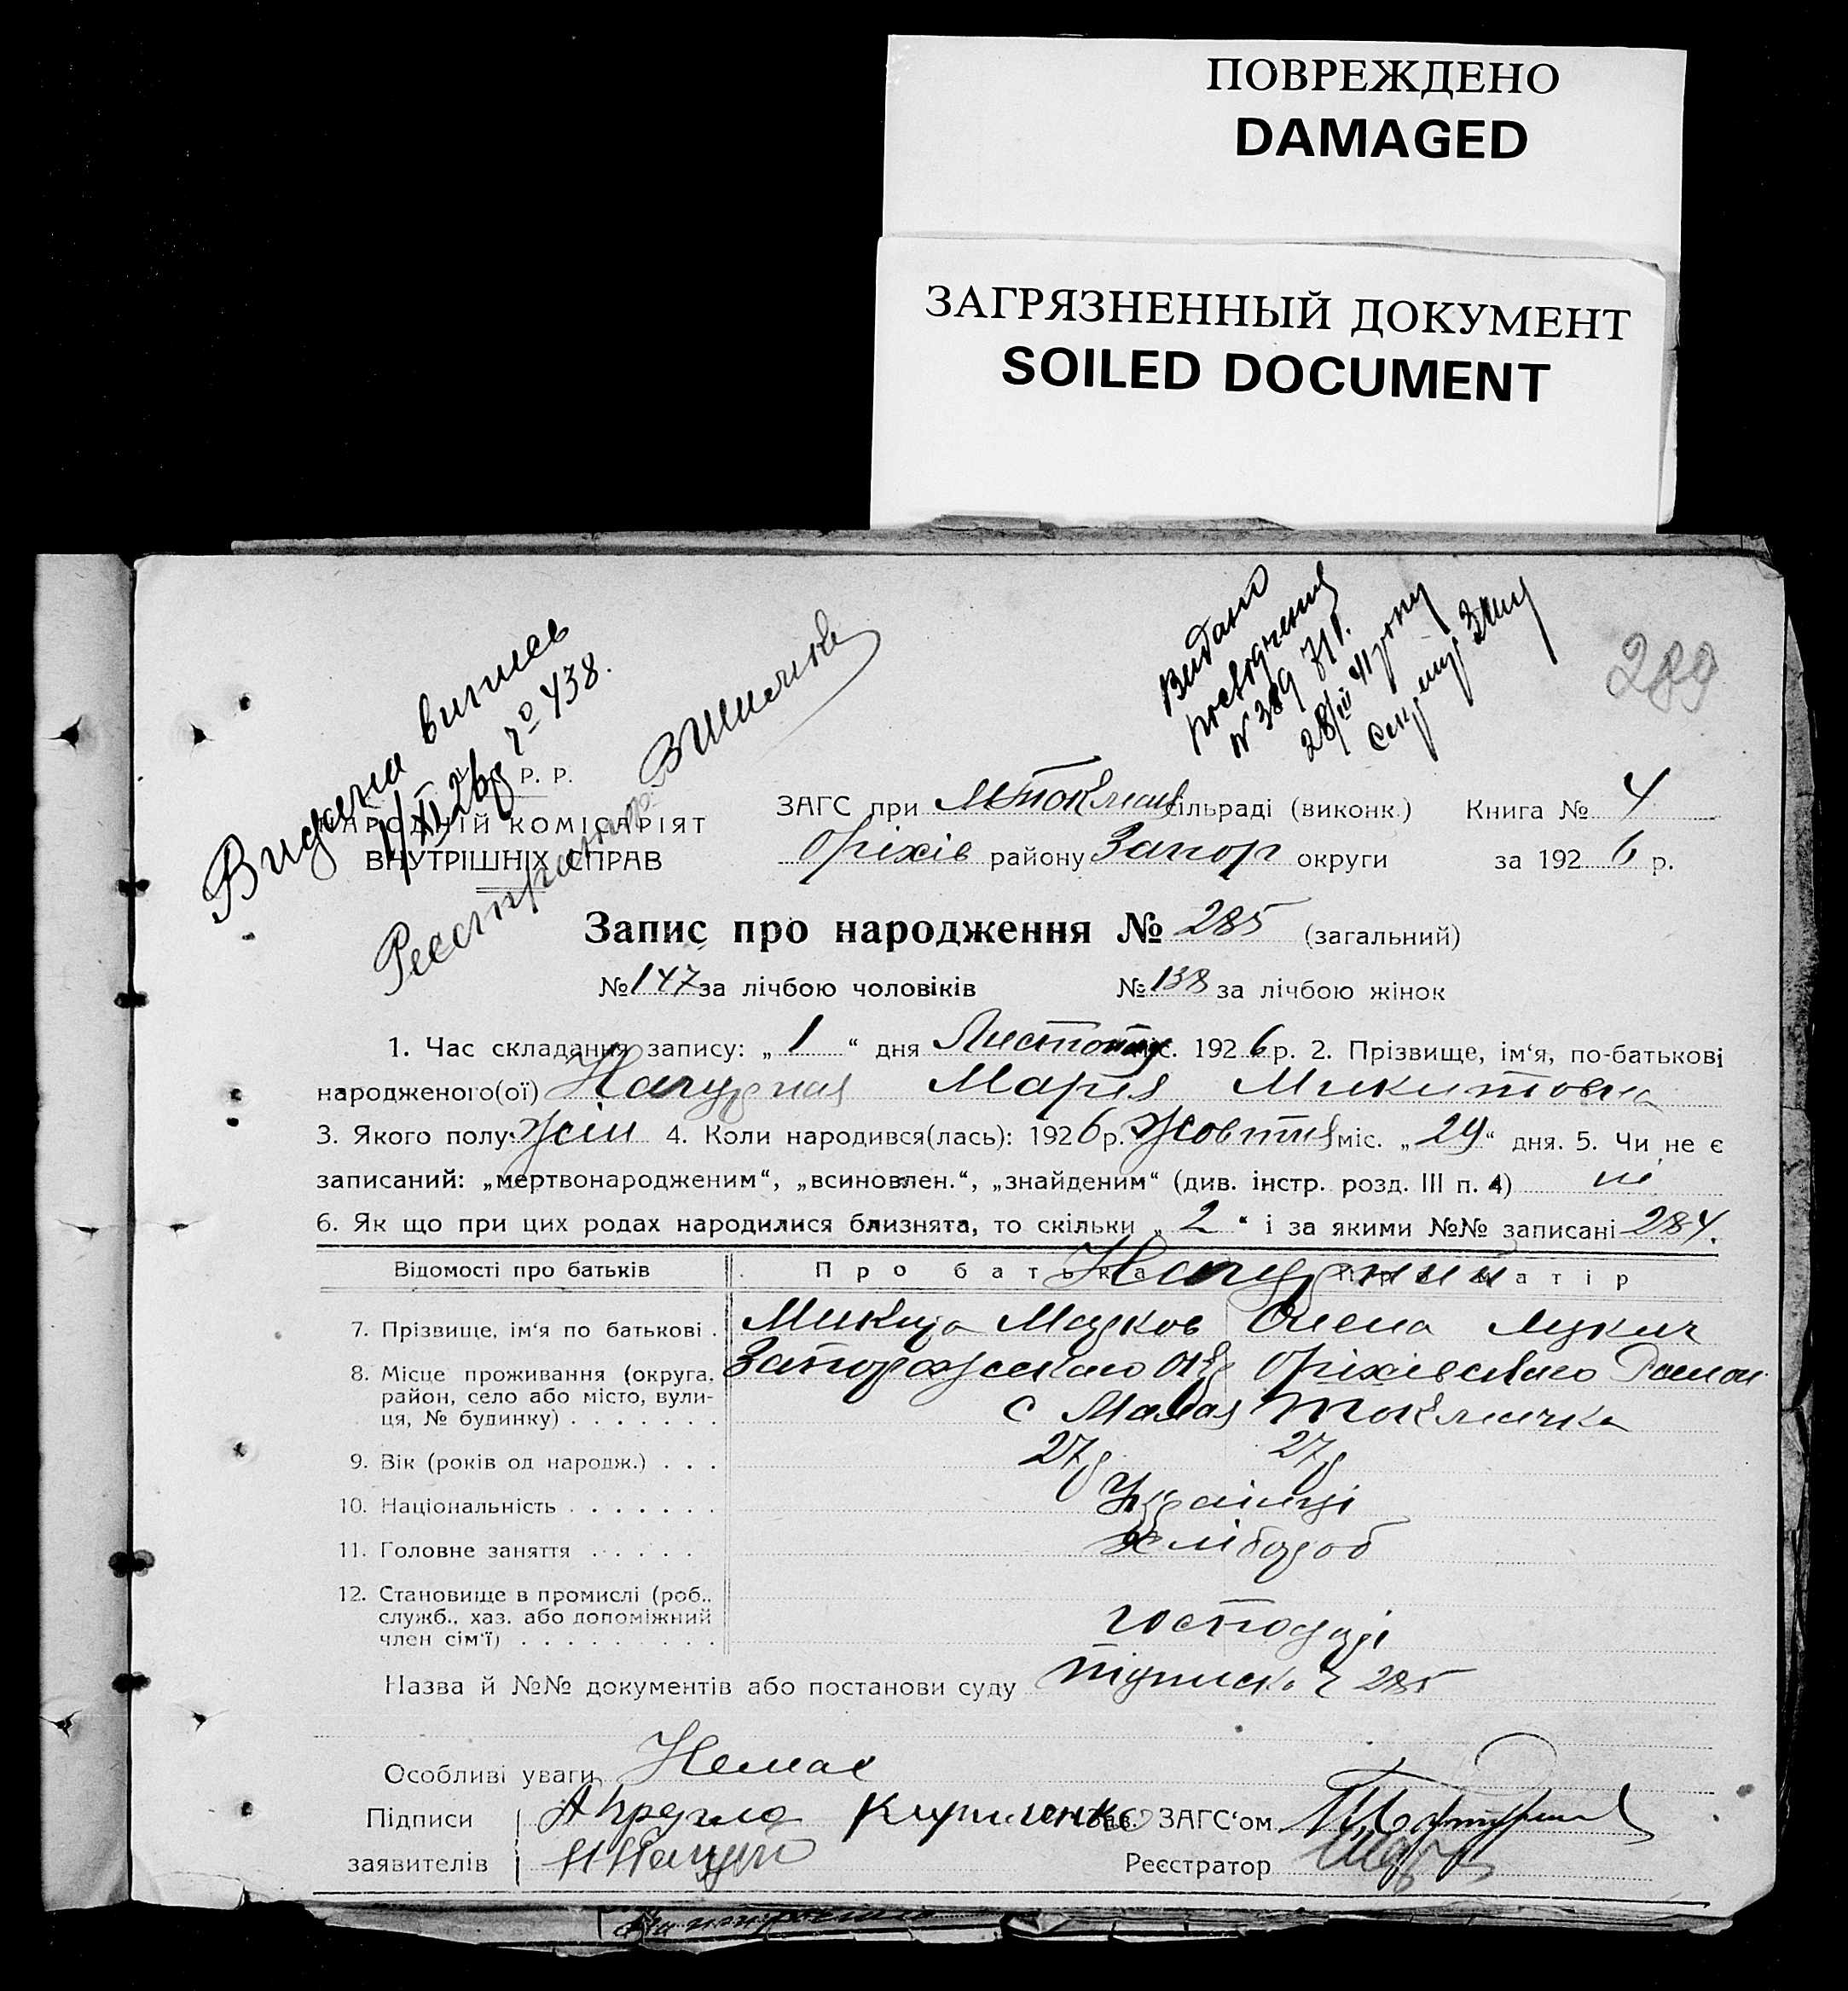 ПОВРЕЖДЕНО
DAMAGED
ЗАГРЯЗНЕННЫЙ ДОКУМЕНТ
SOILED DOCUMENT
Видана
№ 389
289
Видана випись
1/XI 26р № 438.
Р. Р.
НАРОДНІЙ КОМІСАРІЯТ
ВНУТРІШНІХ СПРАВ
Реєстратор
ЗАГС при М Токмац сільраді (виконк.) Книга № 4
Оріхів району Запор округи за 192 6 р.
Запис про народження № 285 (загальний)
№ 147 за лічбою чоловіків № 138 за лічбою жінок
1. Час складання запису: „ 1 “ дня Листопад міс. 192 6 р. 2. Прізвище, ім'я, по-батькові
народженого(ої) Мария Микитовна
3. Якого полу: жін 4. Коли народився(лась): 192 6 р. Жовтня міс. „ 29 “ дня. 5. Чи не є
записаний: „мертвонародженим“, „всиновлен.“, „знайденим“ (див. інстр. розд. III п. 4) ні
6. Як що при цих родах народилися близнята, то скільки „ 2 “ і за якими №№ записані 284.
Відомості про батьків Про батька Про матір
7. Прізвище, ім'я по батькові . Микита Марков Олена Лукич
8. Місце проживання (округа, Запорожскаго Окр Оріхівскаго Район
район, село або місто, вули-
ця, № будинку) . . . . . . . с Малая Токмачка
9. Вік (років од народж.) . . . 27р 27р
10. Національність . . . . . . . Українці
11. Головне заняття . . . . . хлібороб
12. Становище в промислі (роб.,
служб., хаз. або допоміжний
член сім'ї) . . . . . . . . . господарі
Назва й №№ документів або постанови суду підписка № 285
Особливі уваги Немає
Підписи Кириленко Зав. ЗАГС'ом
заявителів Реєстратор